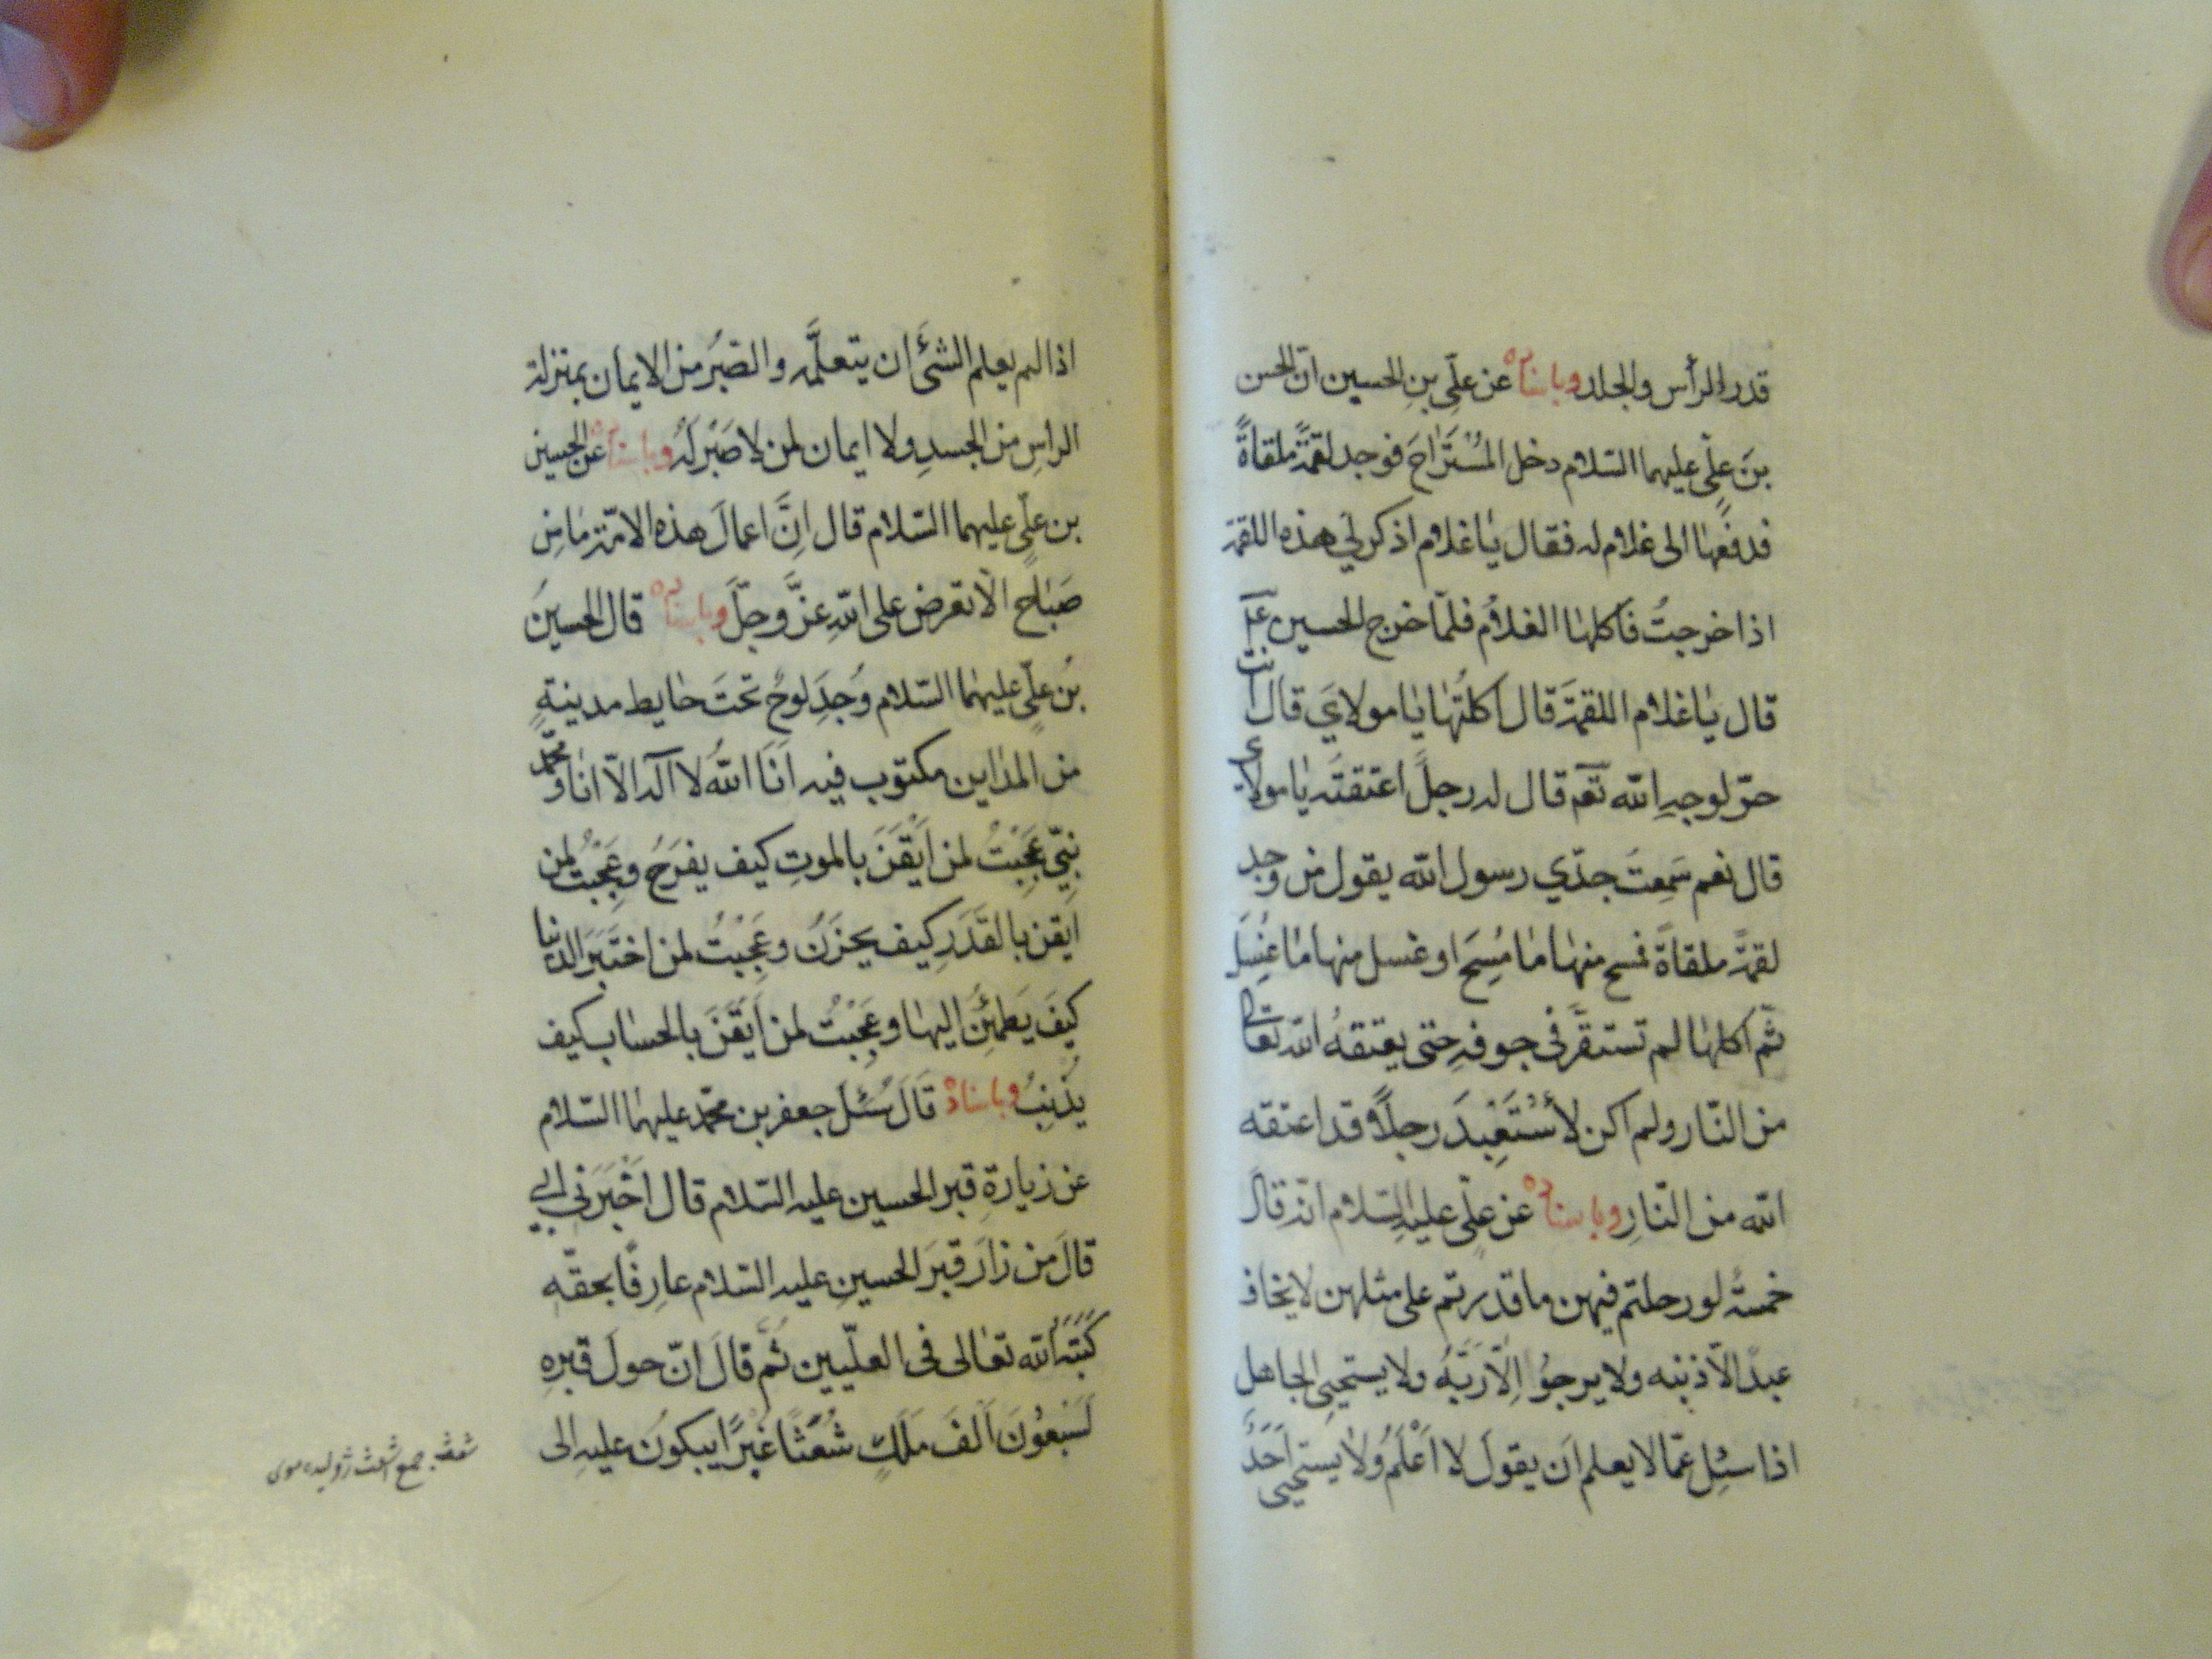 قدر الرأس والجلد وباسناده عن علّي بنِ الحسين انّ الحسن
بنَ علّيٍ عليهما السّلام دخل المُسْتَراحَ فوجد لقمَةً ملقاةً
فدفعها الى غلام له فقال يا غلام اذكر لي هذه اللقمة
اذا خرجتُ فاكلها الغلامُ فلمّا خرج الحسين عليه
قال يا غلام اللقمةَ قال اكلتُها يا مولايَ قال انت
حرّ لوجهِ الله تعم قال له رجلٌ اعتقتَه يا مولاي
قال نعم سَمِعتَ جدّي رسول الله يقول من وجد
لقمةً ملقاةً فمسح منها ما مُسِحَ او غسل منها ما غُسِلَ
ثمّ اكلها لم تستقرَّ في جوفهِ حتى يعتقهُ الله تعالى
من النّار ولم اكن لأَسْتَعْبِدَ رجلاً قد اعتقه
الله من النّارِ وباسناده عن علّيٍ عليه السّلام انّه قالَ
خمسةٌ لو رحلتم فيهن ما قدرتم على مثلهن لا يخاف
عبدٌ الاّ ذنبه ولا يرجوُ اِلاّ رَبَّهُ ولا يستحيي الجاهل
اذا سئِل عمّا لا يعلم اَن يقولَ لا اَعْلَمُ ولا يستحيى اَحَدٌ
اذا لم يعلم الشئَ ان يتعلَّمه والصّبرُ من الايمان بمنزلة
الراسِ من الجسدِ ولا ايمان لمن لا صَبْرَ لهُ وباسناده عن الحسين
بن علّيٍ عليهما السّلام قال اِنَّ اعمالَ هذه الامّةِ ما مِن
صَباحٍ الاّ تعرض على اللهِ عزَّ وجلَّ وباسناده قال الحسينُ
بنُ علّيٍ عليهما السّلام وُجِدَ لوحٌ تحتَ حايط مدينةٍ
من المداين مكتوب فيه اَنَا اللهُ لا آله الاّ انا ومحمّد
نبيّي عَجِبْتُ لمن اَيْقَنَ بالموتِ كيف يفرَحُ وعَجِبْتُ لمن
اَيقن بالقَدَرِ كيف يحزنُ وعَجِبْتُ لمن اختَبَر الدنيا
كيفَ يَطمئِنُّ اليها وعَجِبْتُ لمن اَيْقَنَ بالحساب كيف
يُذنِبُ وباسناده قَالَ سُئلَ جعفر بن محمّد عليهما السّلام
عن زيارةِ قبر الحسين عليه السّلام قال اَخْبَرَني ابي
قالَ من زارَ قبرَ الحسينِ عليه السّلام عارِفًا بحقّه
كَتَبَهُ الله تعالى فى العلّيين ثُمَّ قالَ انّ حولَ قبرِهِ
لَسَبْعُونَ اَلفَ مَلَكٍ شُعْثًا غُبْرًا يبكونَ عليهِ الى
شعث جمع اشعث ژوليده موى